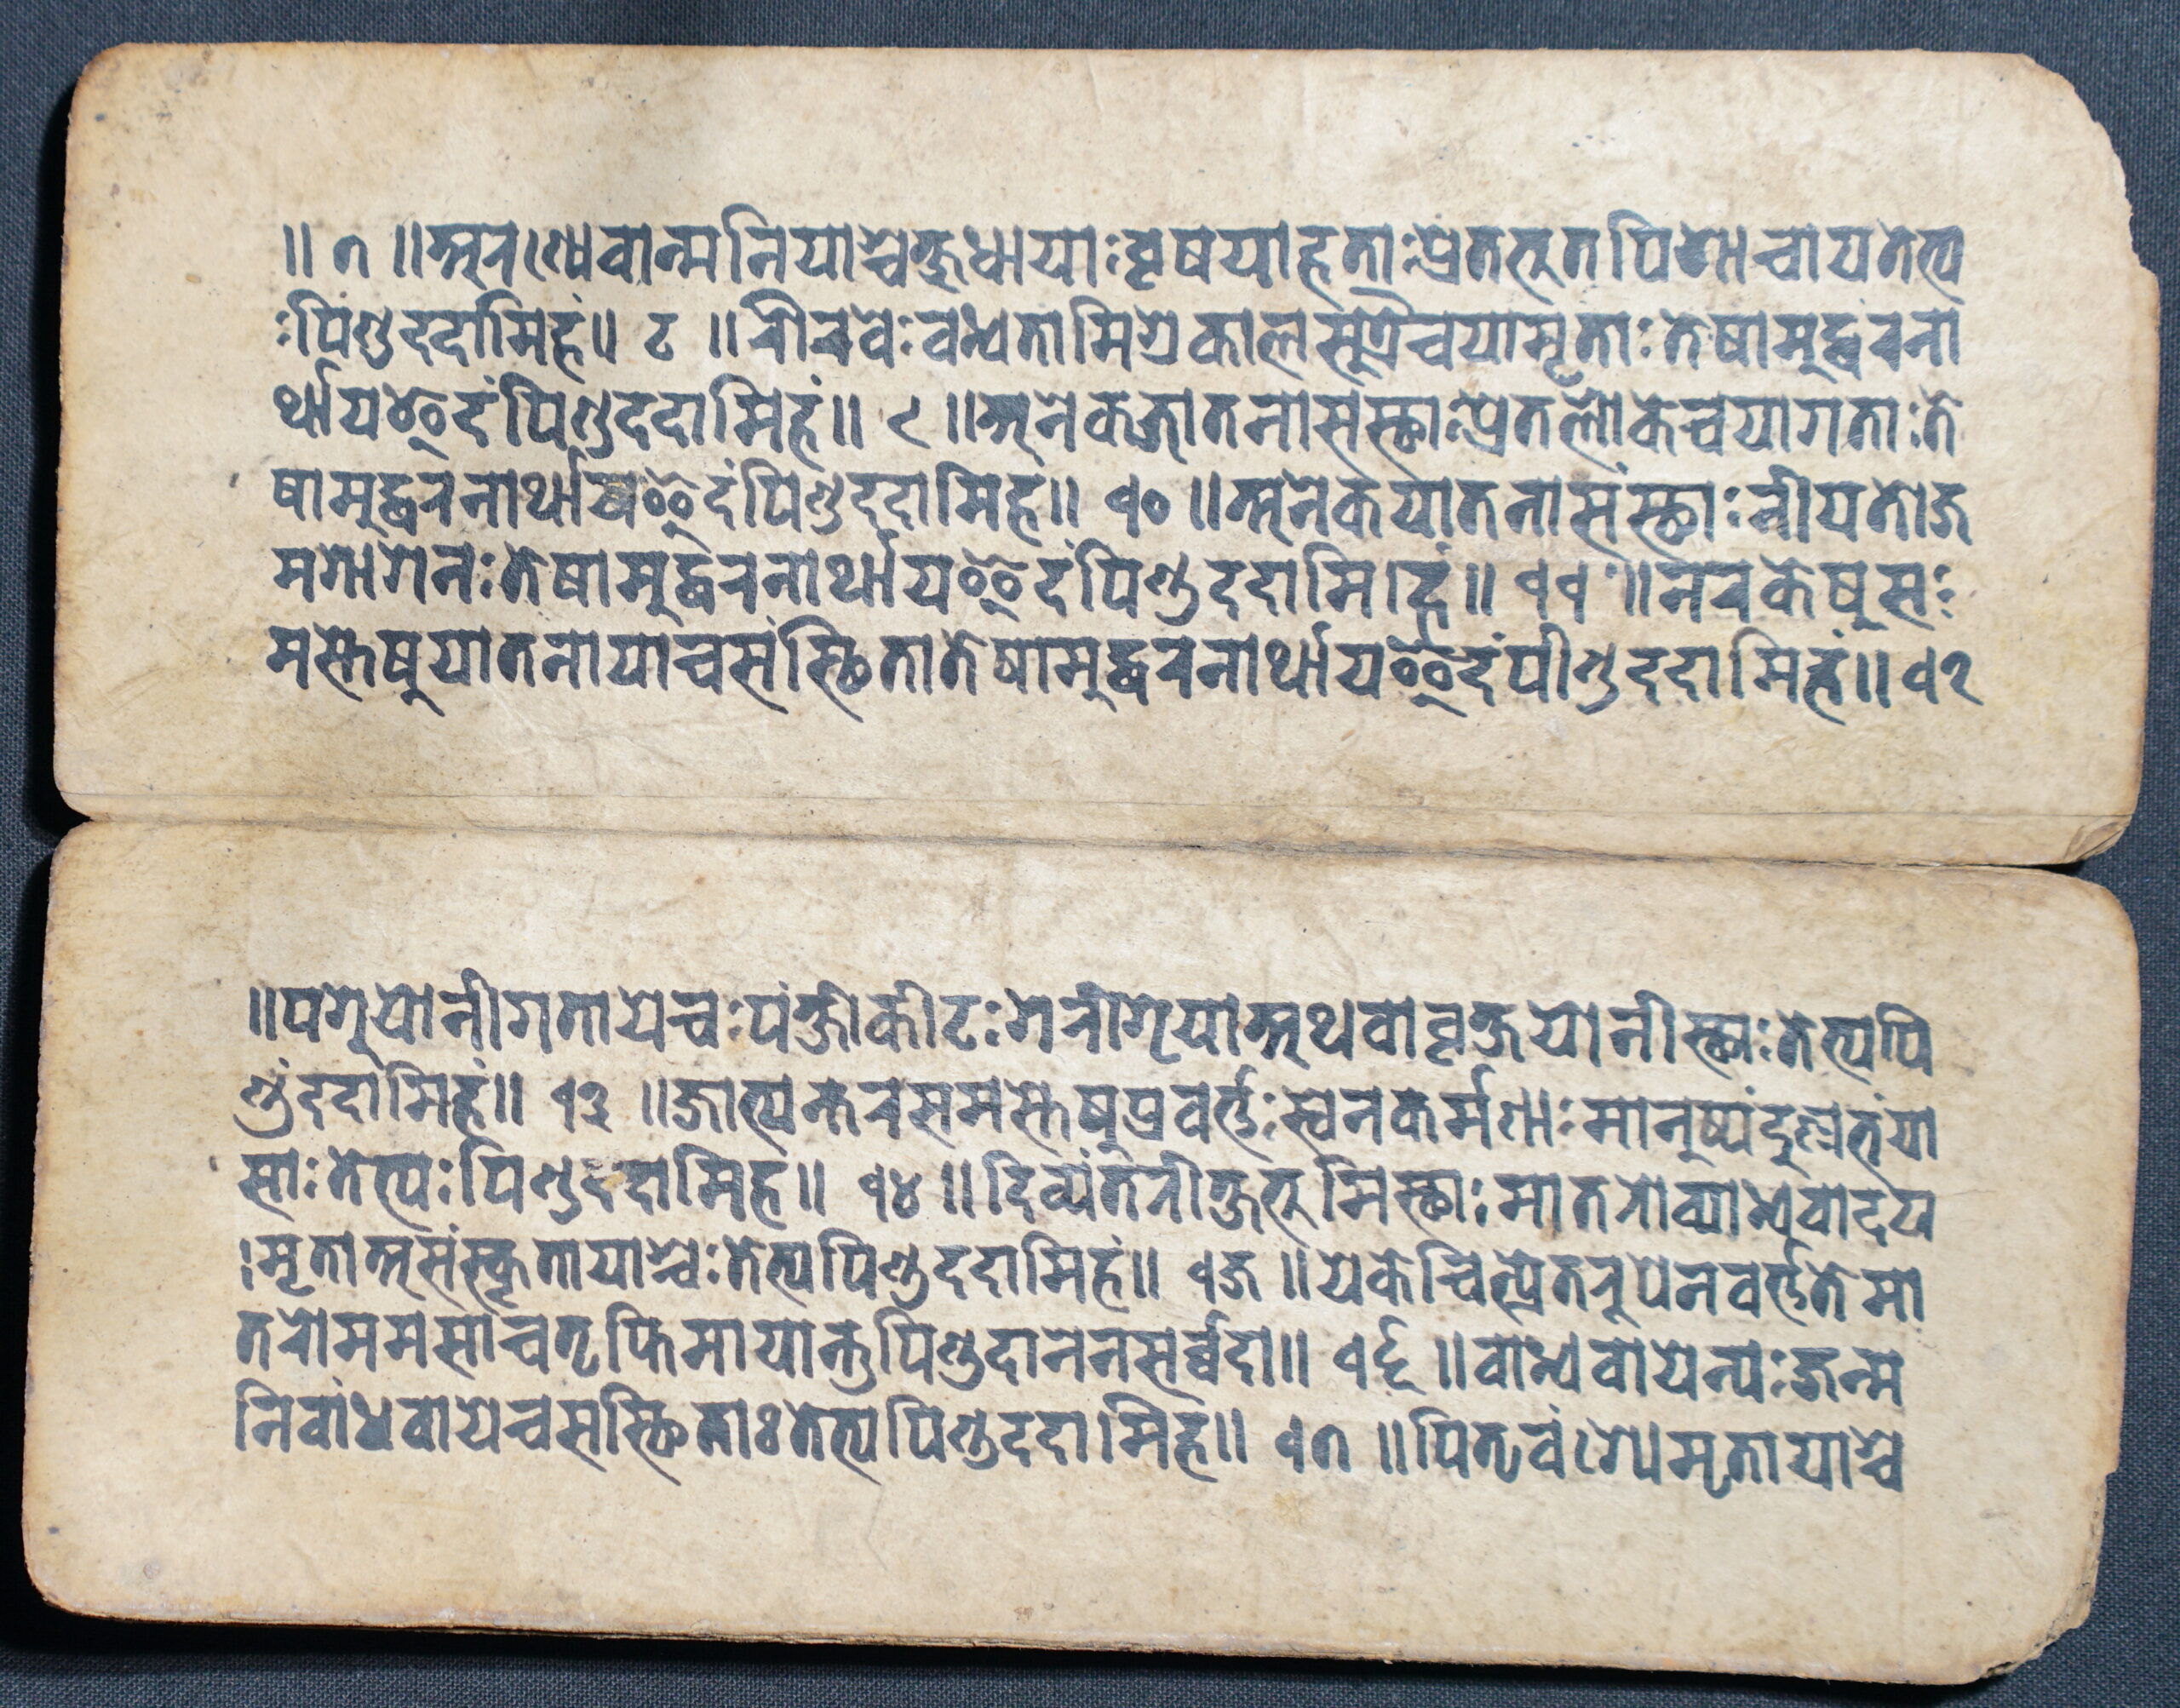 ॥ ७ ॥अरण्येवान्मनियाश्चेक्षुधायाःवृषयाहताःप्रेतभुतपिशाचायतेभ्य
ःपिंण्डुददामिहं॥ ८ ॥रौरवेःवंध्यतामिग्रेकालसुत्रैचयामृताःतेषामुद्धरना
र्थायॐदंपिण्डुददामिहं॥ ९ ॥अनेकजातनासंस्थाःप्रेतलोकेचयागताःते
षामुद्धरनार्थायॐदंपिण्डुददामिहं॥ १० ॥अनेकयातनासंस्थाःनीयतोज
मगोगेनःतेषामुद्धरनार्थायॐदंपिण्डुददामिहं॥ ११ ॥नरकेषुसः
मस्तेषुयातनायाचसंस्थितातेषामुद्धरनार्थायॐदंपीण्डुददामिहं॥ १२
॥पशुयोनीगतायेचःपंक्षीकीटःशरीशृयाअथवावृक्षयोनीस्थाःतेभ्यपि
ण्डुंददामिहं॥ १३ ॥जात्यन्तरसमस्तेषुप्रवर्त्तःस्वेनकर्मणाःमानुष्यंदुल्लभंया
साःतेभ्यःपिण्डुददामिहं॥ १४ ॥दिव्यंतरीक्षभुमिस्थाःमातरोव्याध्यवादय
ःमृताअसंस्कृतायाश्चेःतेभ्यपिण्डुददामिहं॥ १५ ॥येकेचित्प्रेतरुपेनवर्त्ततेमा
तरोममसाचतृप्तिमायान्तुपिण्डुदानेनसर्व्वदा॥ १६ ॥वाध्यवायेन्यःजन्म
निवांधवायेचसस्थिताःतेभ्यपिण्डुददामिहं॥ १७ ॥पितृवंश्येमृतायाश्चे